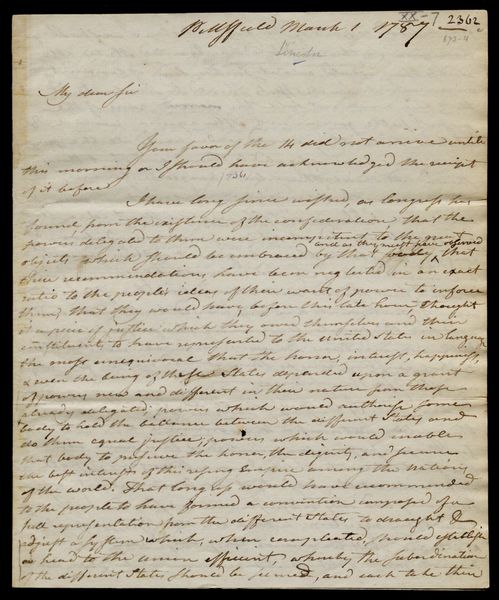 XX-7 2362
Pittsfield March 1 1787
693-4
Lincoln
My dear Sir
Your favor of the 14 did not arrive untill
this morning or I should have acknowledged the receipt
of it before
2361
I have long since wished, as Congress has
found, from the existence of the confederation that the
powers delegated to them were inconsistent to the great
objects which should be embraced by that body, and as they must have observed that
their recommendations have been neglected in an exact
ratio to the peoples ideas of their want of power to inforce
them, that they would have, before this late hour, thought
it a piece of justice which they owed themselves and their
constituents to have represented to the United States in language
the most unequivocal that the honor, interest, happiness,
& even the being of these States depended upon a grant
of powers new and different in their nature from those
already delegated; powers which would authorise some
body to hold the ballance between the different States and
do them equal justice; powers which would enable
that body to preserve the honor, the dignity, and secure
the best interest of this rising empire among the nations
of the world. That long ago would have recommended
to the people to have formed a convention composed of a
full representation from the different States to draught &
adjust a system which, when compleated, should establish
a head to the union efficient, whereby the subordination
of the different States should be secured, and each take their